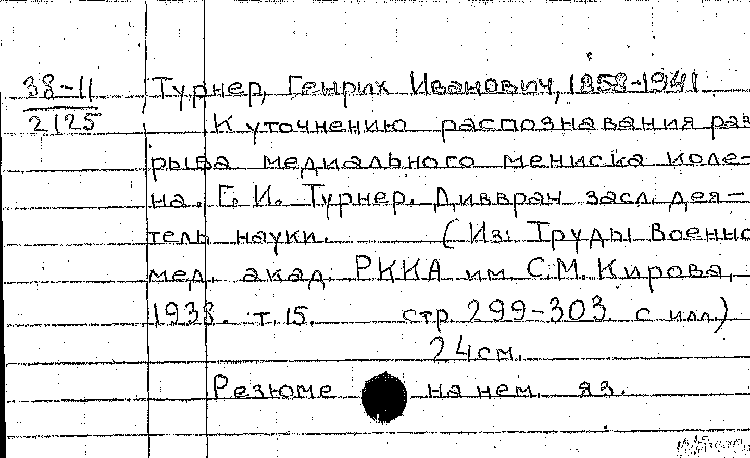 38-11
2125
Турнер, Генрих Иванович, 1858-1941
К уточнению распознавания раз
рыва медиального мениска коле-
на. Г. И. Турнер. Дивврач засл. дея-
тель науки. (Из: Труды Военно
мед. акад. РККА им. С.М. Кирова,
1938. т. 15. стр. 299-303 с илл.)
24см.
Резюме на нем. яз.